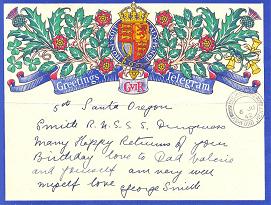 Greetings Telegram
GviR
Santa Oregon
Smith R.M.S.S.S. Dungeness
Many Happy Returns of your
Birthday love to Dad Valerie
and yourself am very well
myself love George Smith